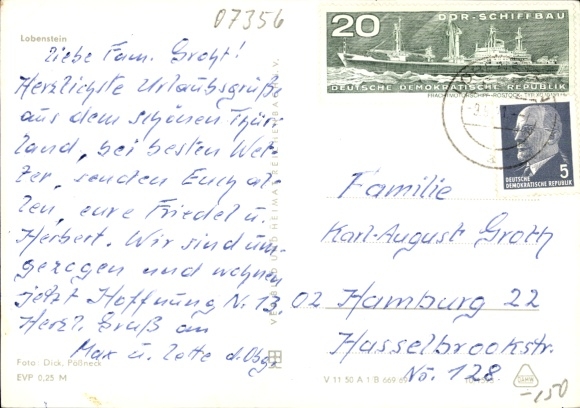 07356
Lobenstein
Liebe Fam. Groth!
Herzlichste Urlaubsgrüße
aus dem schönen Thür-
land, bei besten Wet-
ter, senden Euch al-
len, eure Friedel u.
Herbert. Wir sind um-
gezogen und wohnen
jetzt Hoffnung N. 13.02
Herzl. Gruß an
Max u. Lotte d. Obg.
Foto: Dick, Pößneck
EVP 0,25 M
VERLAG BILD UND HEIMAT REICHENBACH I. V.
20
DDR-SCHIFFBAU
DEUTSCHE DEMOKRATISCHE REPUBLIK
5
DEUTSCHE
DEMOKRATISCHE REPUBLIK
Familie
Karl-August Groth
Hamburg 22
Hasselbrookstr.
No. 128
V 11 50 A 1 B 669
-150